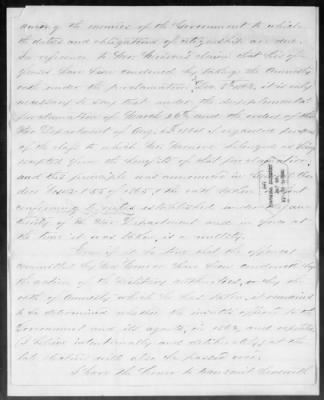 among the enemies of the Government to which
the duties and obligations of citizenship are due.
In reference to Gov. claim that his of-
fences have been condoned by taking the Amnesty
oath under the proclamation Dec 8" 1863, it is only
necessary to say that under the supplemental
proclamation of March 26th and the orders of this
War Department of Aug. 1864 regarded persons
of the class to which belonged as being
excepted from the benefits of that proclamation,
and this principle was announced in
ders No. 55 of 1865, & the oath taken
conforming to rules established under
thority of the War Department and in force at
the time it was taken, is a nullity.
Even if it be true that the offences
committed by Gov. have been condoned by
the action of the Military authorities, or by the
oath of Amnesty which he has taken, it remained
to be determined whether the insults offered to the
Government and its agents, in 1863, and repeated
(I believe intentionally and deliberately) at the
late election will also be passed over.
I have the honor to transmit herewith